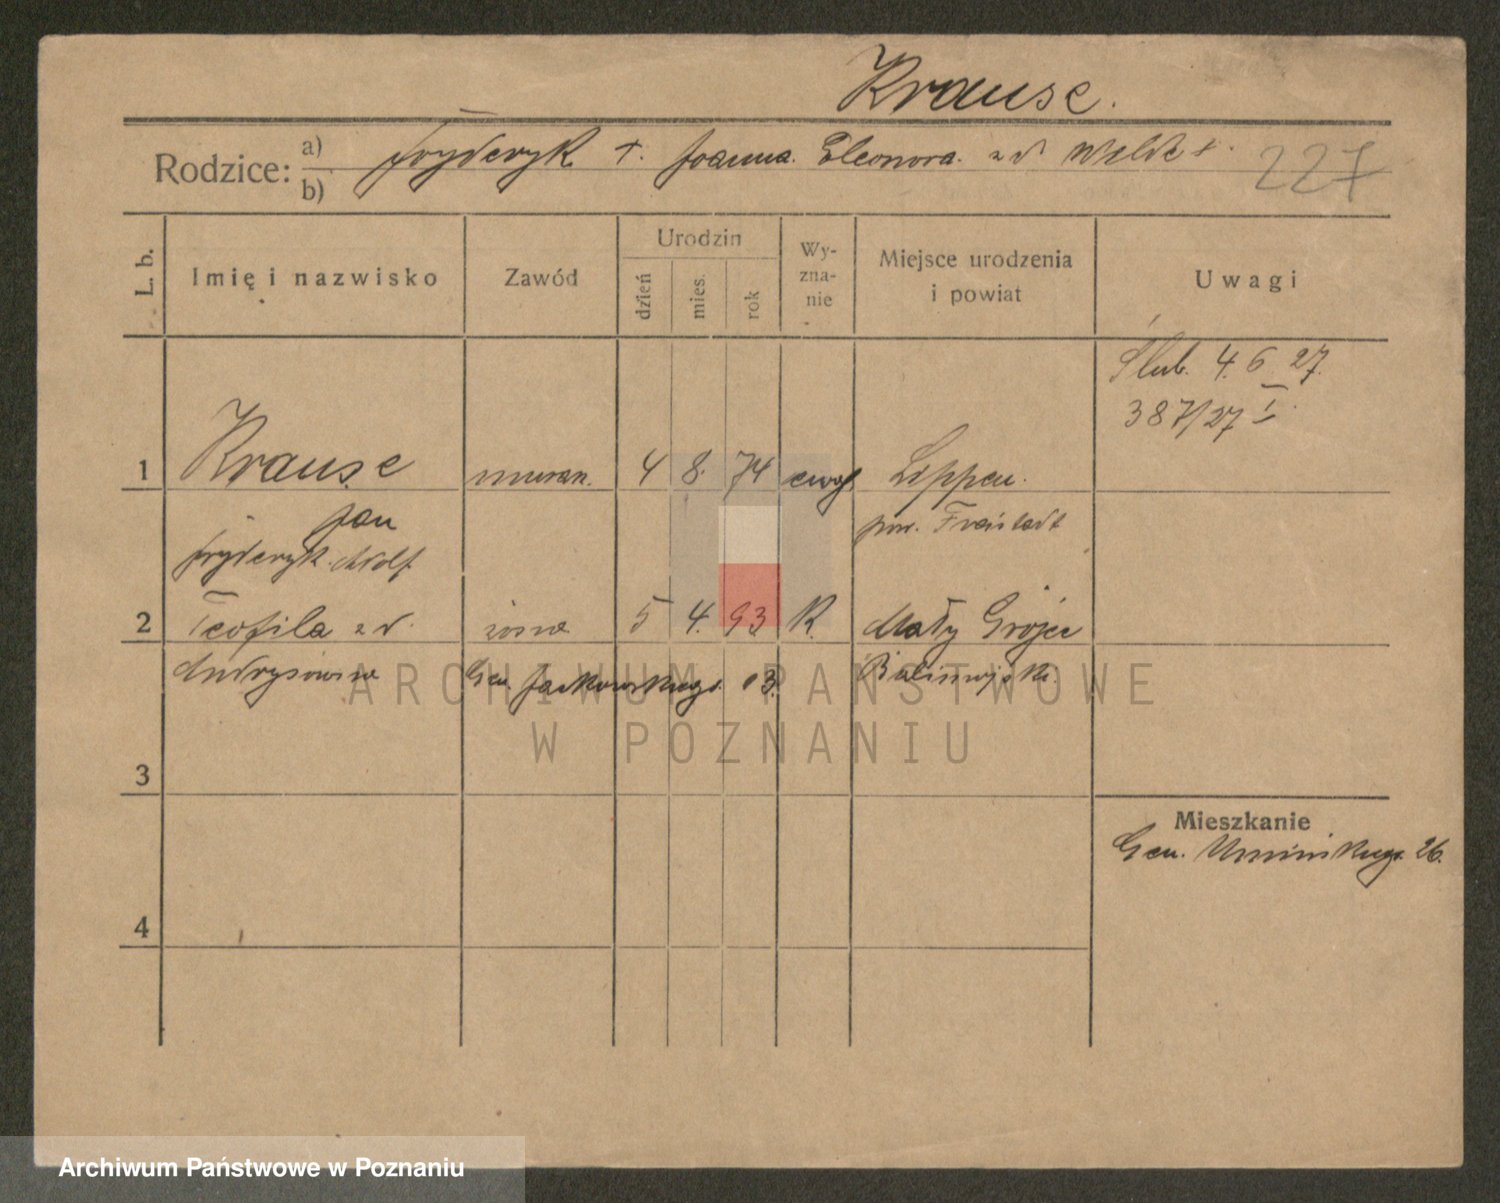 Krause.
Rodzice: a) Fryderyk †. Joanna. Eleonora. z d.
b)
227
L. b.
Imię i nazwisko
Zawód
Urodzin
dzień
mies.
rok
Wy-
zna-
nie
Miejsce urodzenia
i powiat
Uwagi
Ślub. 4. 6 27.
387/27 I.
1 Krause muran. 4 8. 74 ewg. Lippen.
Jan
Fryderyk. Adolf.
pow. Freistadt
2 Teofila z d. żona 5 4. 93 R. Mały Grójec
Gen. Jackowskiego. 13.
3
4
Mieszkanie
Gen. Umińskiego. 26.
ARCHIWUM PAŃSTWOWE
W POZNANIU
Archiwum Państwowe w Poznaniu